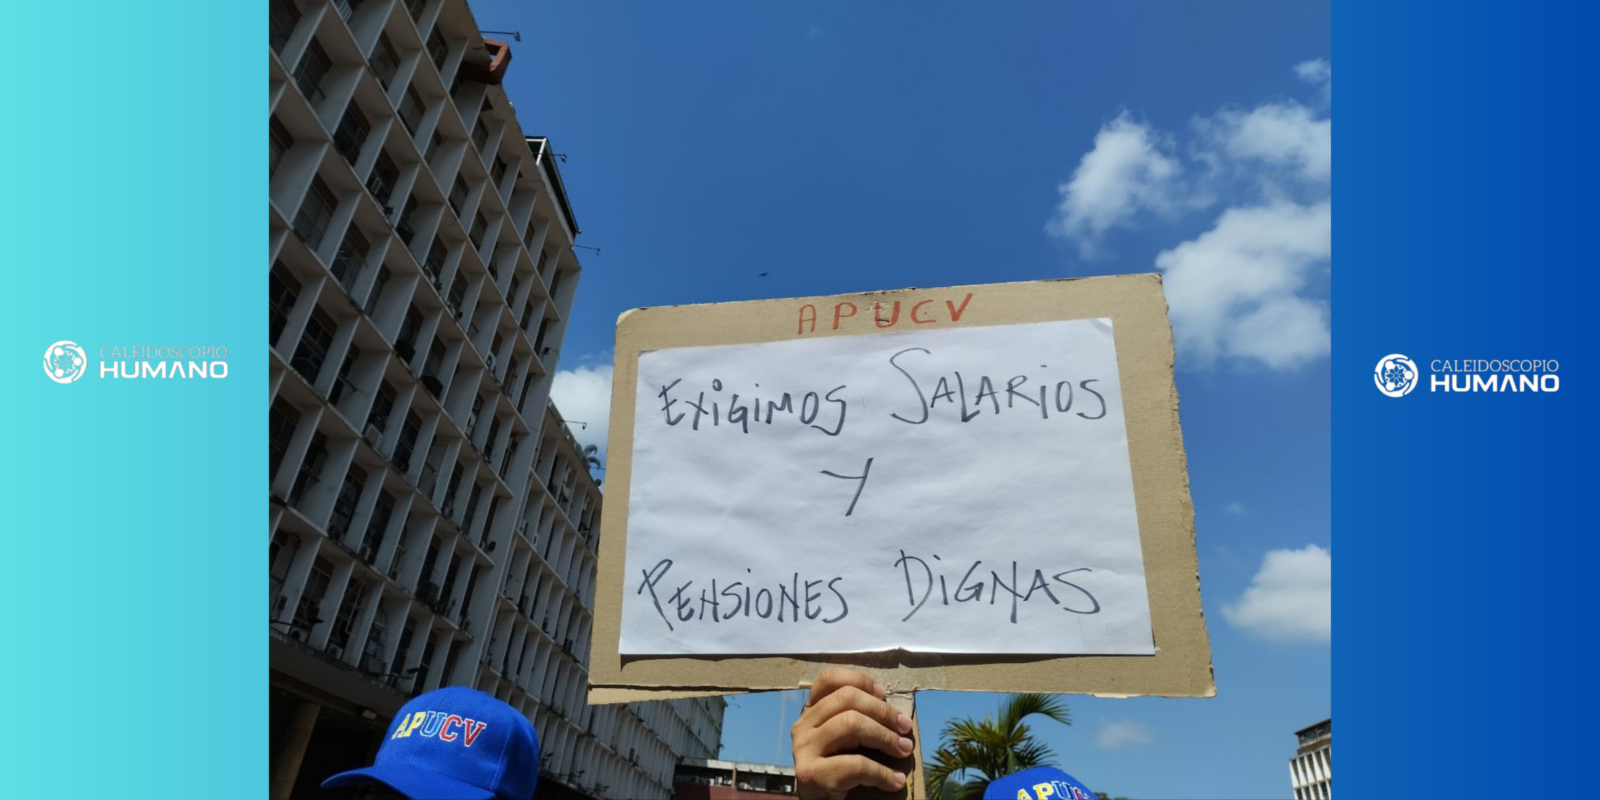 CALEIDOSCOPIO
HUMANO
APUCV
EXIGIMOS SALARIOS
Y
PENSIONES DIGNAS
APUCV
APUC
CALEIDOSCOPIO
HUMANO